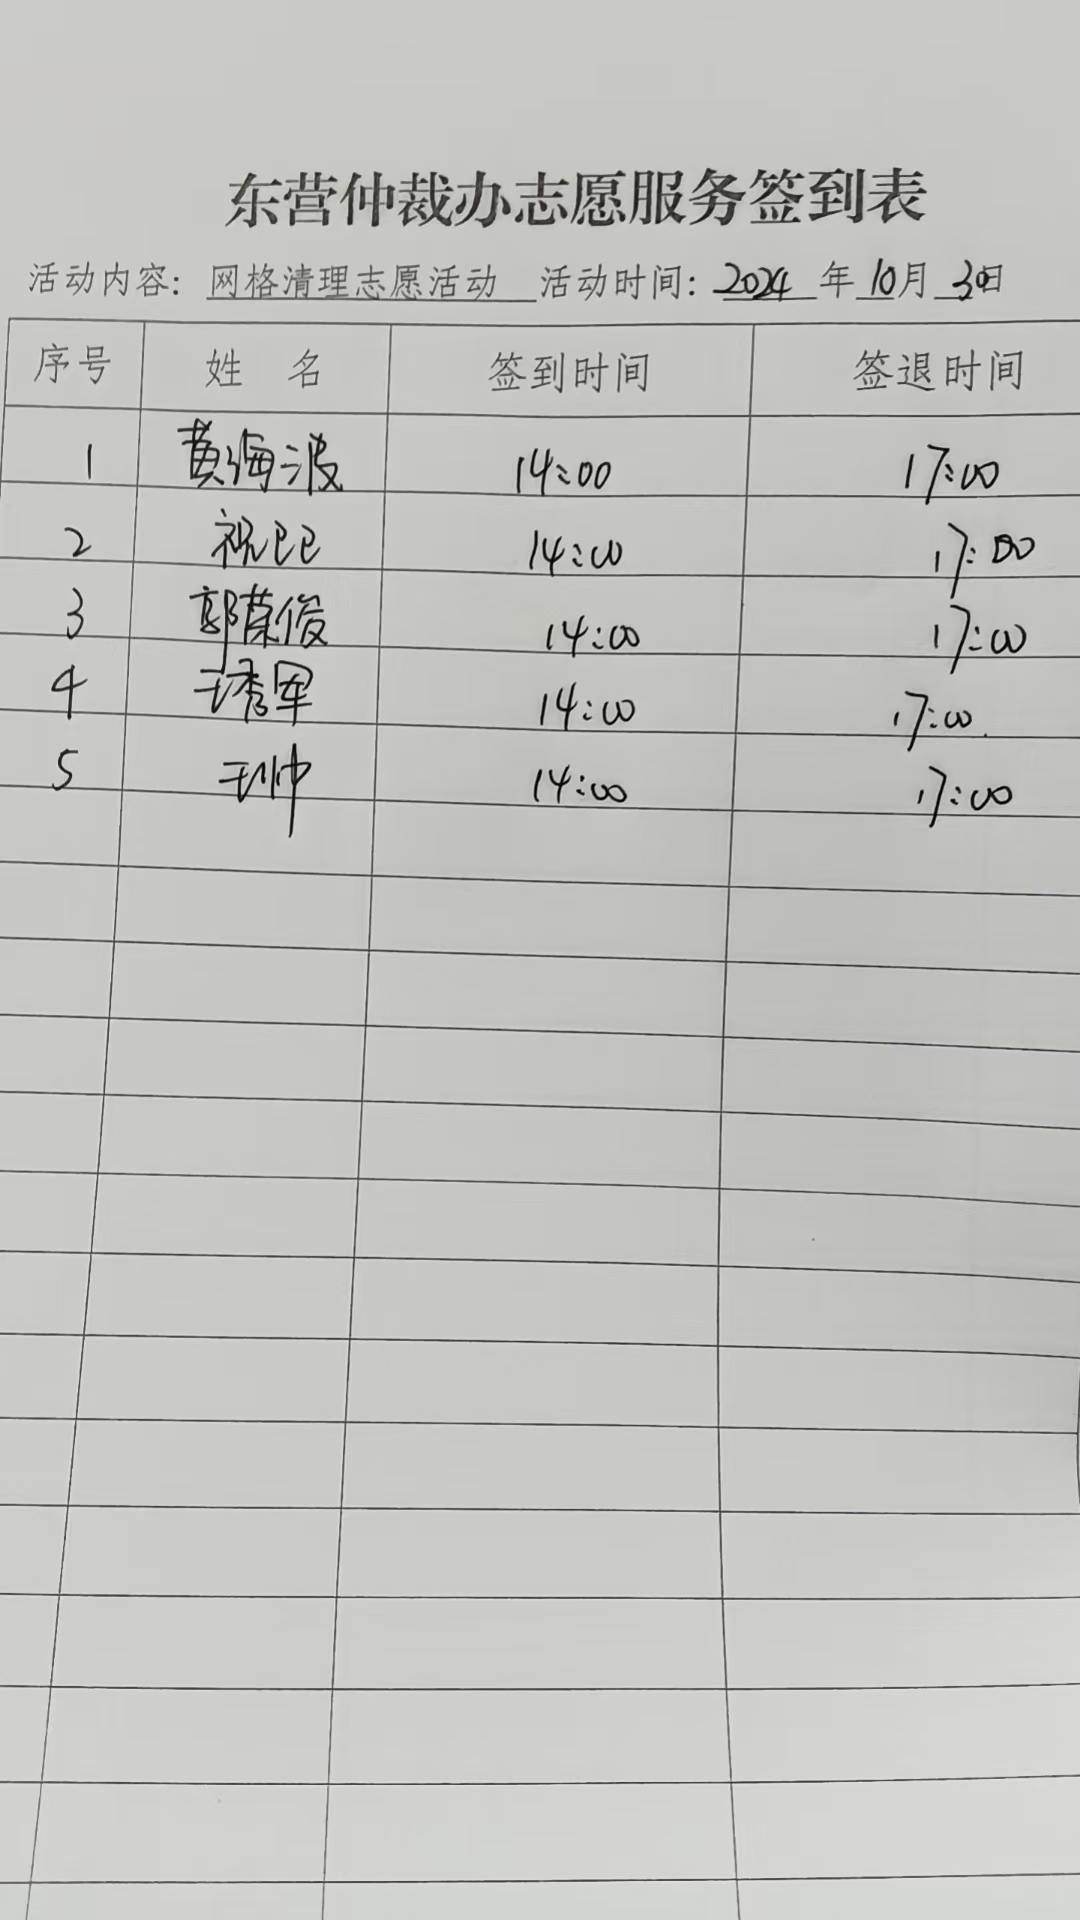 东营仲裁办志愿服务签到表
活动内容：网格清理志愿活动 活动时间：2024年10月30日
序号 姓 名 签到时间 签退时间
1 黄海波 14:00 17:00
2 祝巴巴 14:00 17:00
3 郭荣俊 14:00 17:00
4 王秀军 14:00 17:00
5 王帅 14:00 17:00